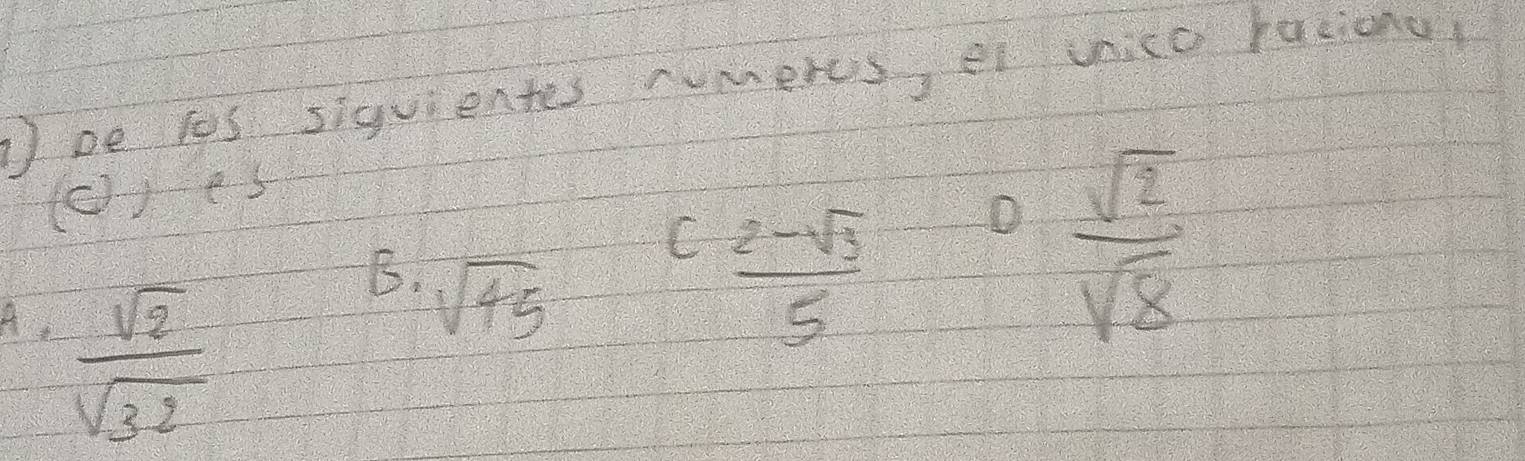 1) De los siguientes numeros, el unico racional
(Q) es
A. √2/√32 B. √45 C (2-√3)/5 D √2/√8